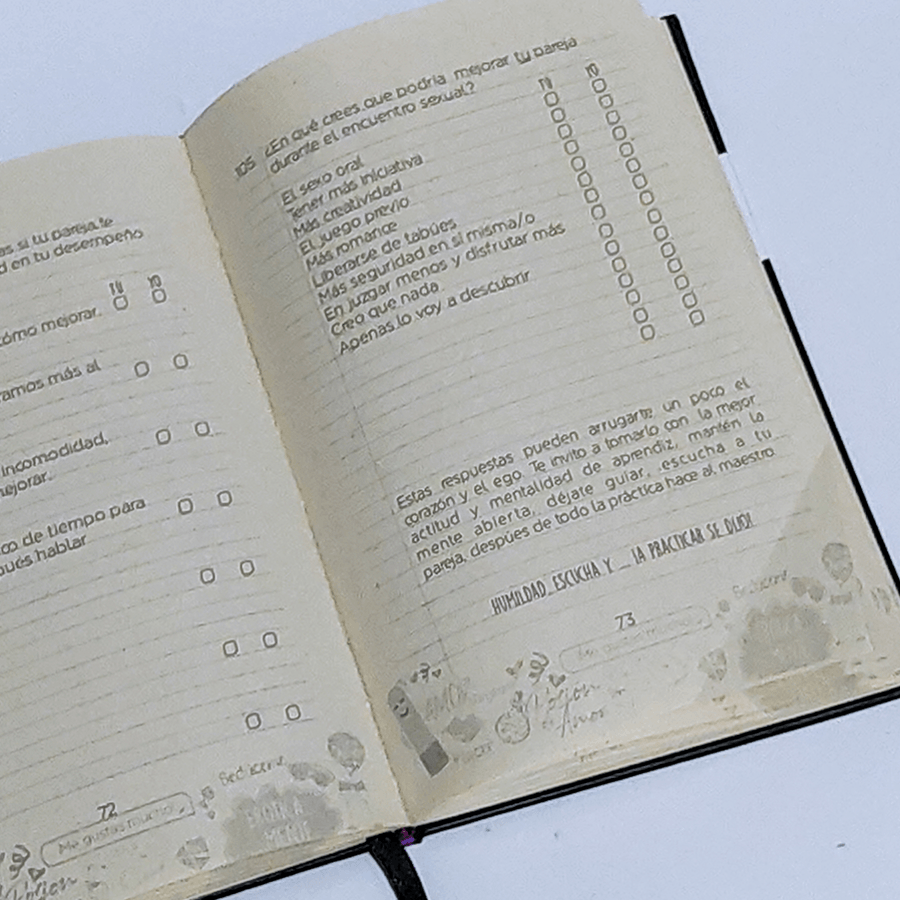 as si tu pareja te
d en tu desempeño
TÚ YO
cómo mejorar.
ramos más al
incomodidad,
mejorar.
co de tiempo para
pués hablar
72
Me gustas mucho
Seduceme
105 ¿En qué crees que podría mejorar tu pareja
durante el encuentro sexual?
TÚ YO
El sexo oral
Tener más iniciativa
Más creatividad
El juego previo
Más romance
Liberarse de tabúes
Más seguridad en sí misma/o
En juzgar menos y disfrutar más
Creo que nada
Apenas lo voy a descubrir
Estas respuestas pueden arrugarte un poco el
corazón y el ego. Te invito a tomarlo con la mejor
actitud y mentalidad de aprendiz, mantén la
mente abierta, déjate guiar, escucha a tu
pareja, despúes de todo la práctica hace al maestro
HUMILDAD, ESCUCHA Y ... ¡A PRACTICAR SE DIJO!
73
Me gustas mucho
Seduceme
AMOR
Amor